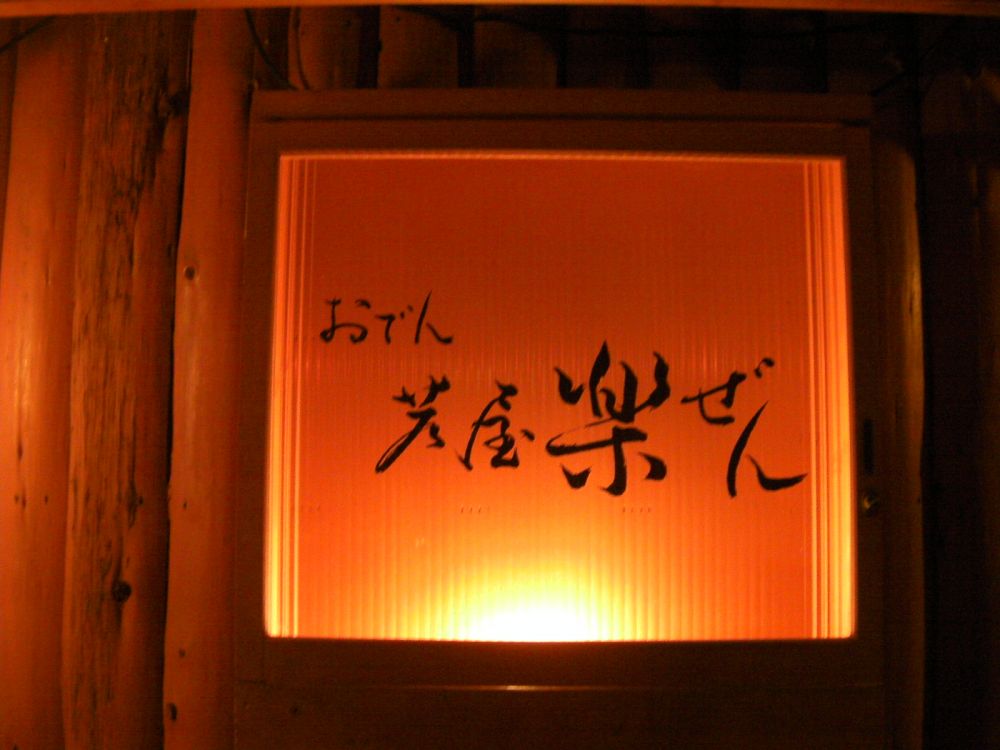 おでん
芦屋楽ぜん